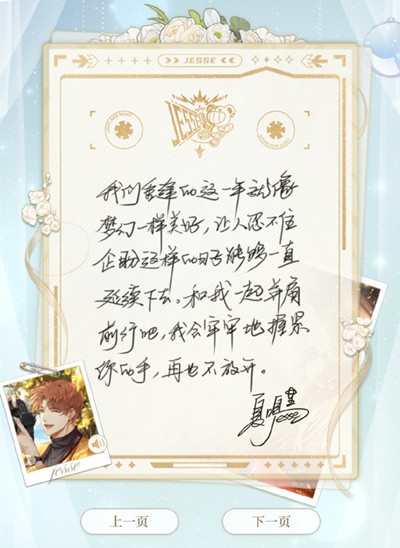 >> JESSE <<
JESSE
我们重逢的这一年就像
梦幻一样美好，让人忍不住
企盼这样的日子能够一直
延续下去。和我一起并肩
前行吧，我会牢牢地握紧
你的手，再也不放开。
夏鸣星
Jesse
jesse
上一页
下一页